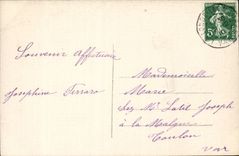 Souvenir Affectueux
Josephine Ferraro
Mademoiselle
Marie
chez Mr Latil Joseph
à la Malgue
Toulon
Var